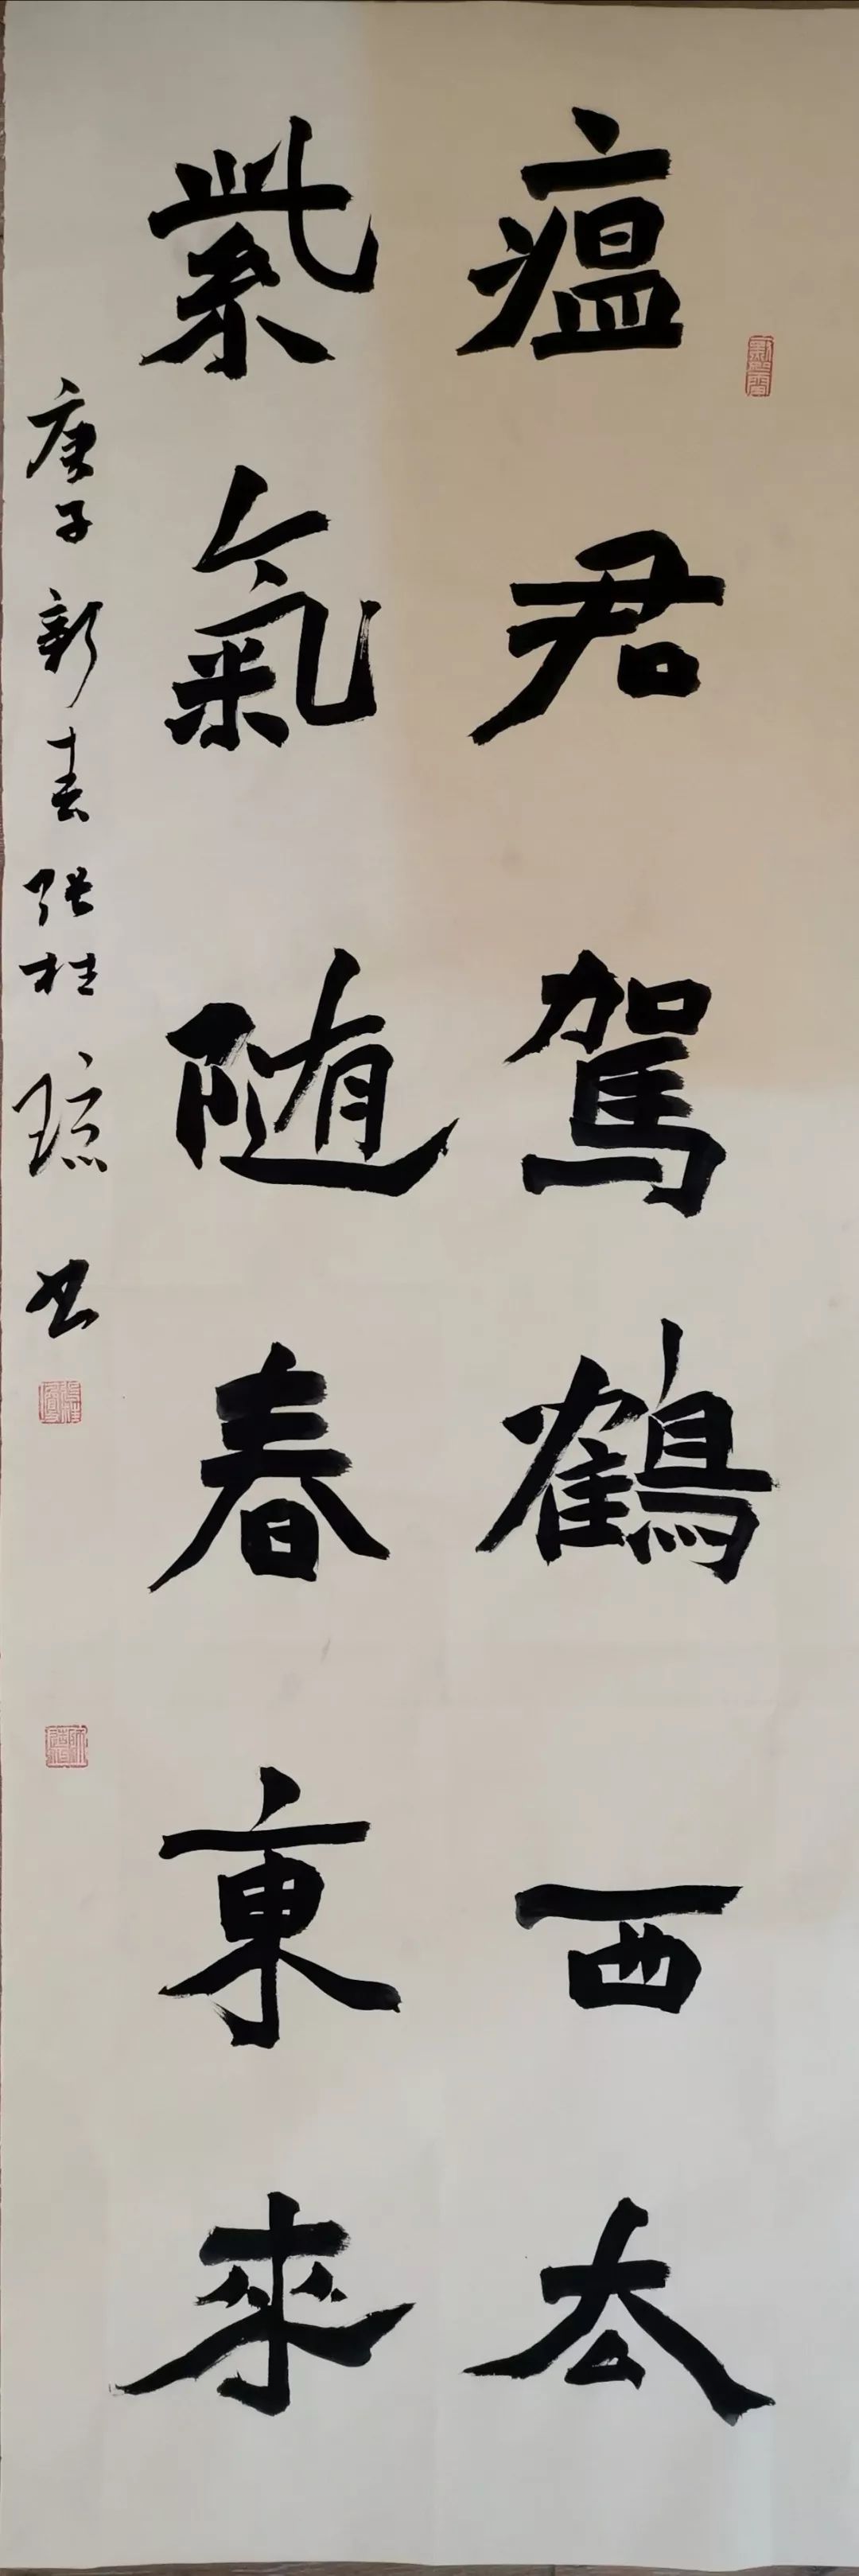 瘟君駕鶴西去
紫氣随春東來
庚子新春張桂琼书